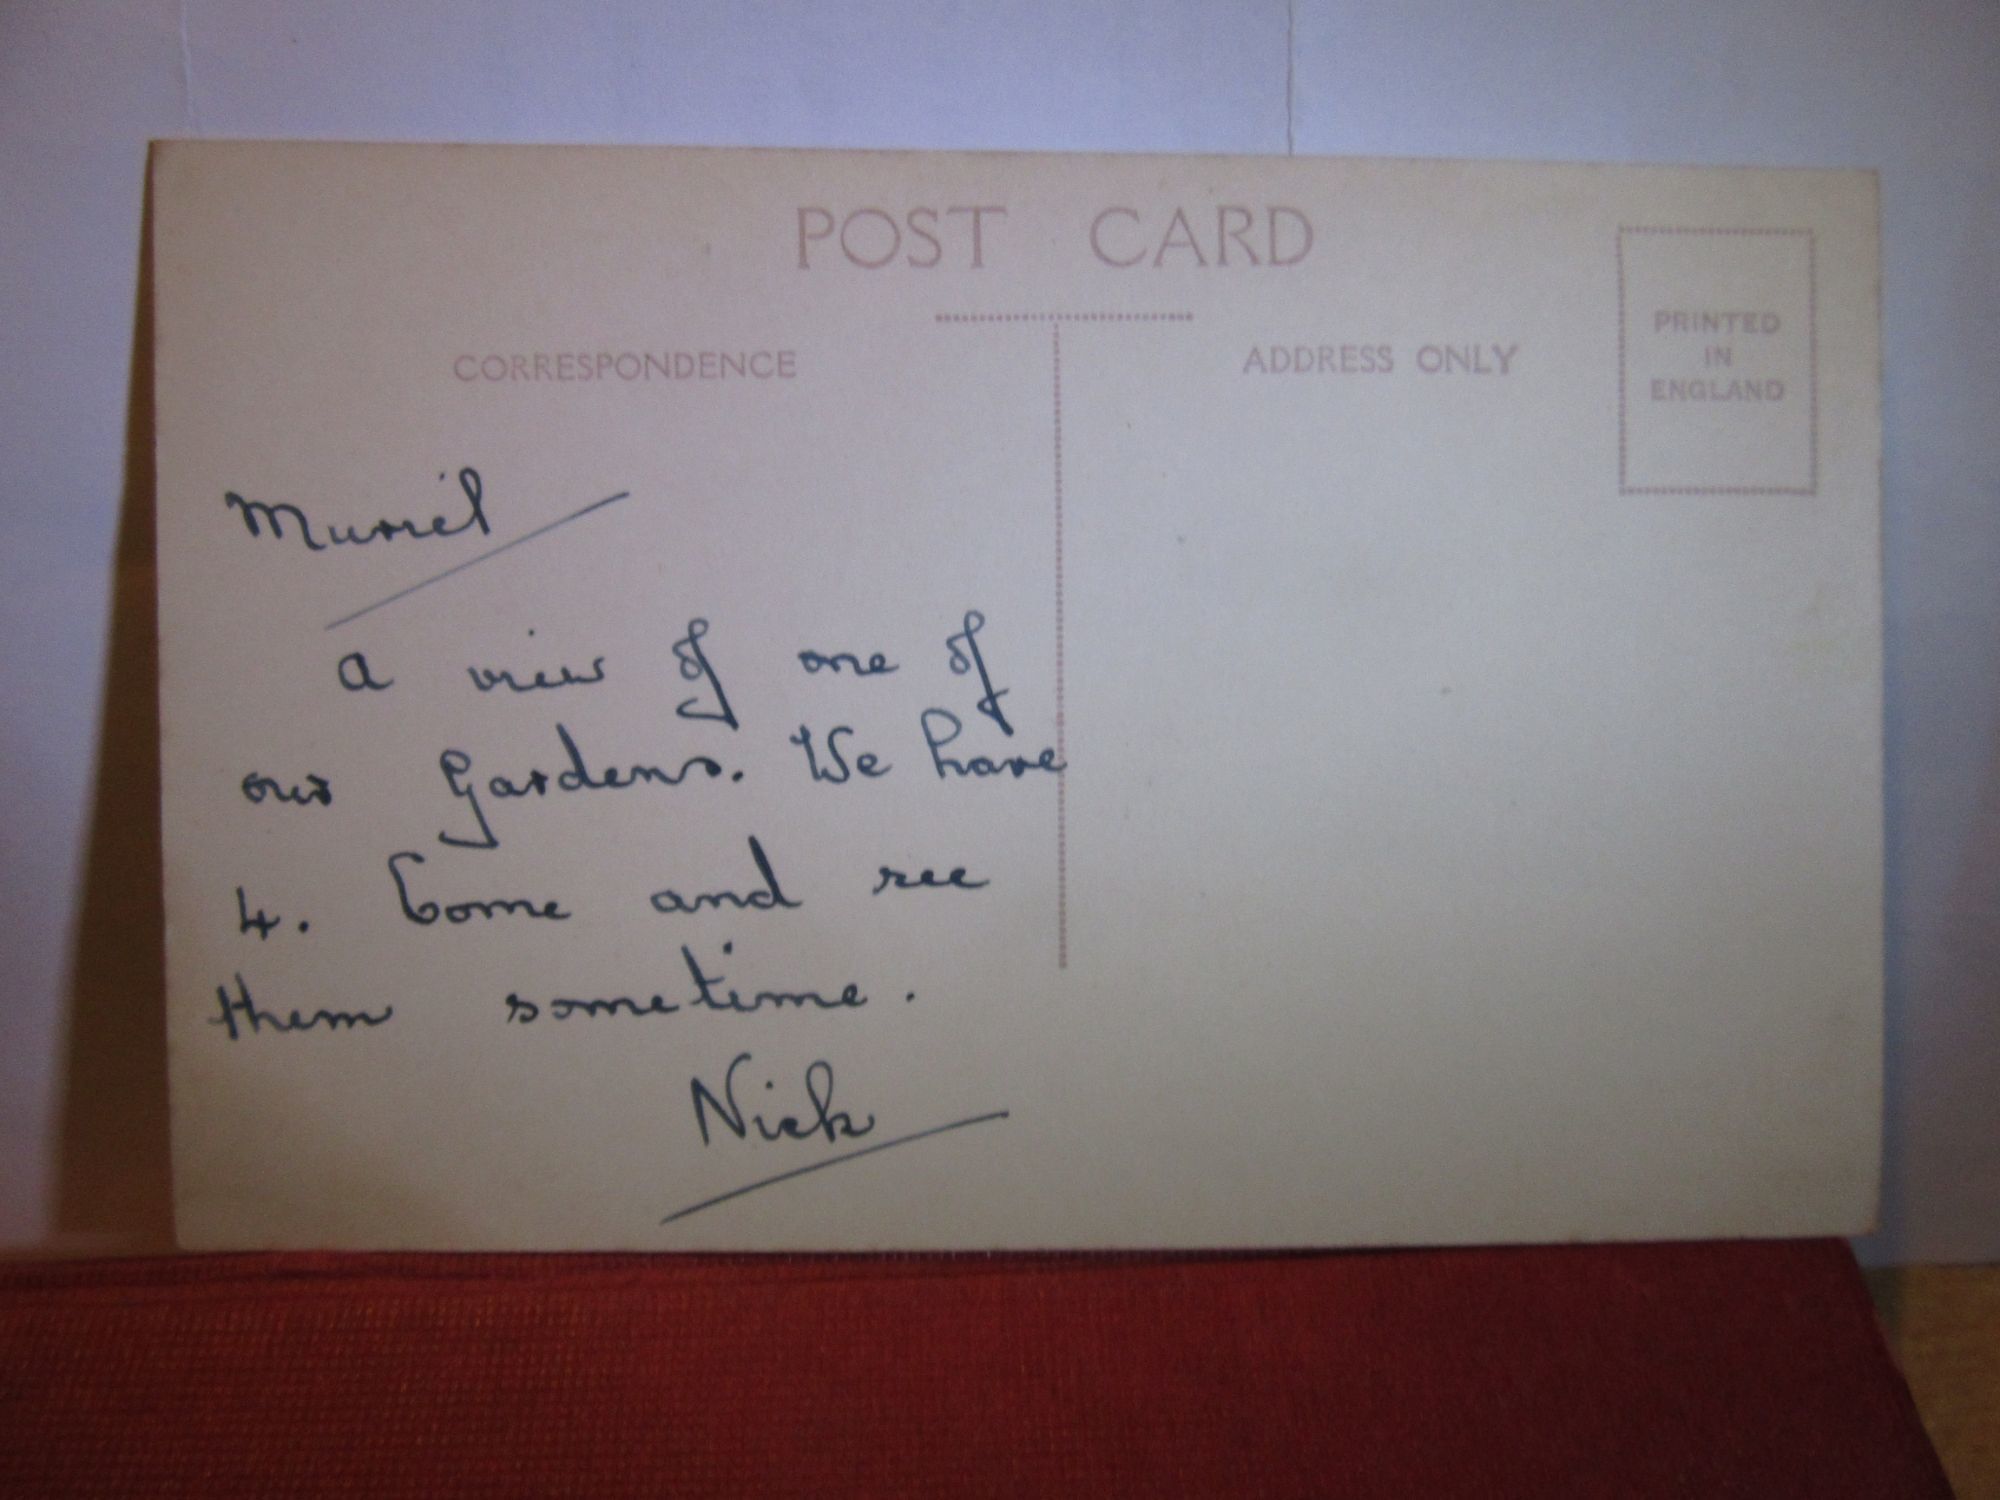 POST CARD
CORRESPONDENCE
ADDRESS ONLY
PRINTED
IN
ENGLAND
Muriel
a view of one of
our Gardens. We have
4. Come and see
them sometime.
Nick